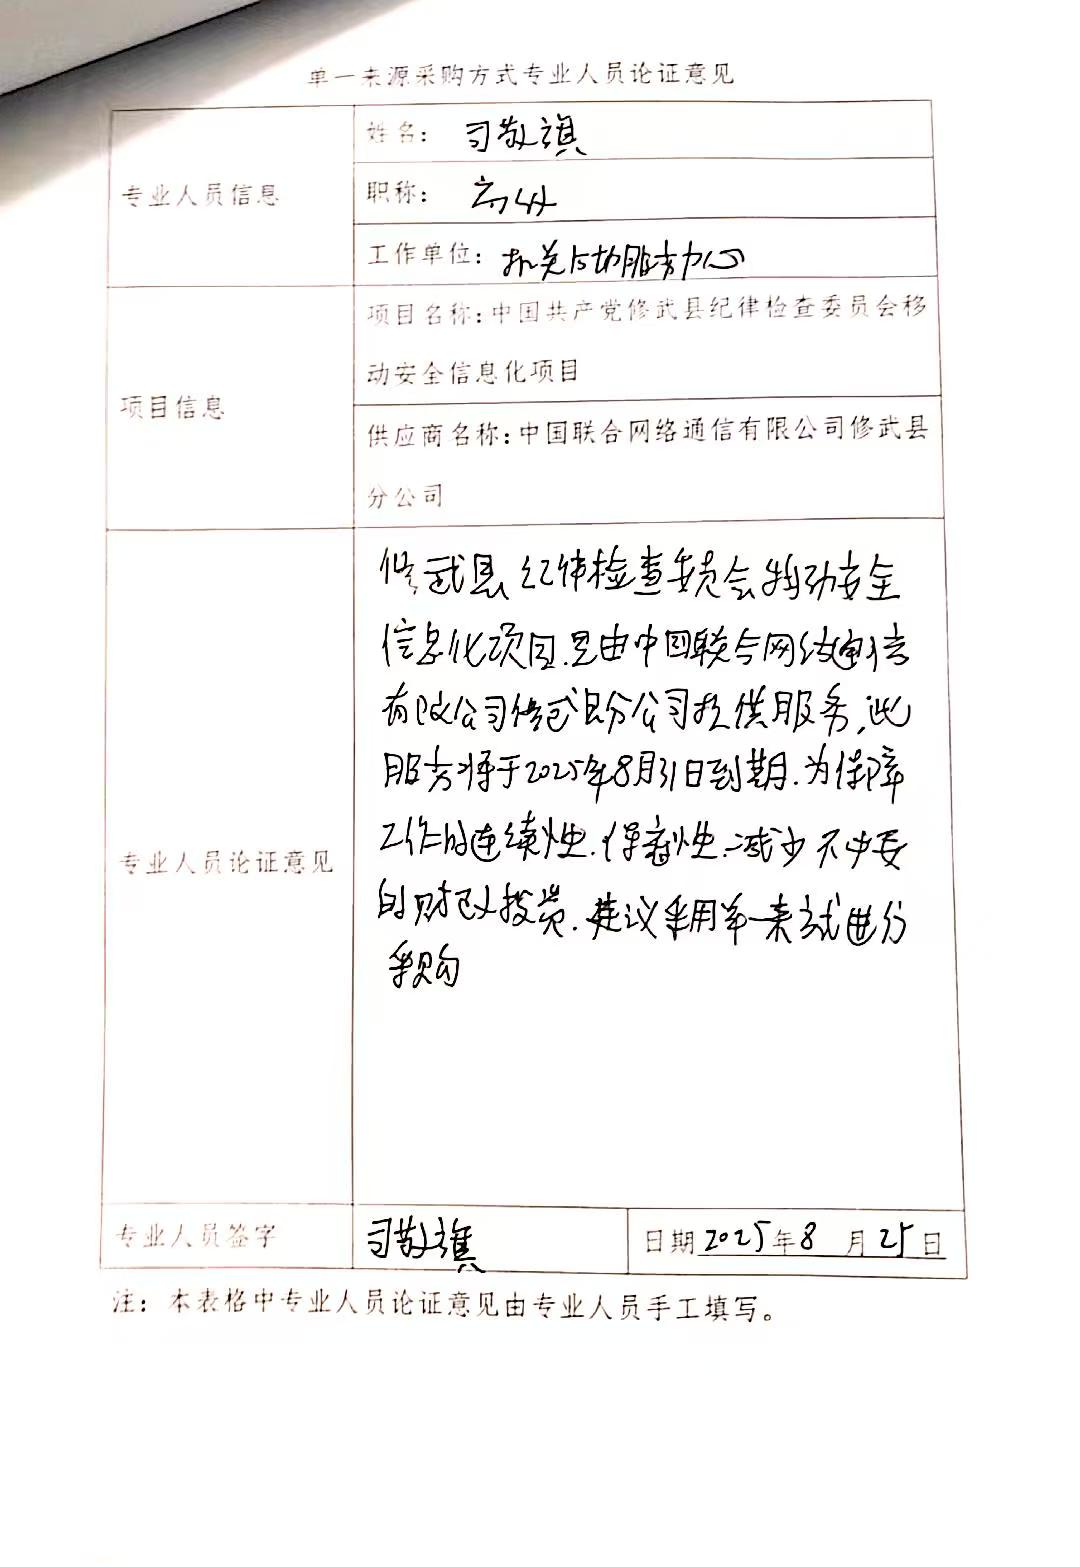 单一来源采购方式专业人员论证意见
专业人员信息
姓名： 司敬旗
职称： 高级
工作单位： 机关后勤服务中心
项目信息
项目名称：中国共产党修武县纪律检查委员会移
动安全信息化项目
供应商名称：中国联合网络通信有限公司修武县
分公司
专业人员论证意见
修武县纪律检查委员会移动安全
信息化项目.是由中国联合网络通信
有限公司修武县分公司提供服务,此
服务将于2025年8月31日到期.为保障
工作的连续性.保密性.减少不必要
的财政投资.建议采用单一来式进行
采购
专业人员签字
司敬旗
日期2025年8月25日
注：本表格中专业人员论证意见由专业人员手工填写。